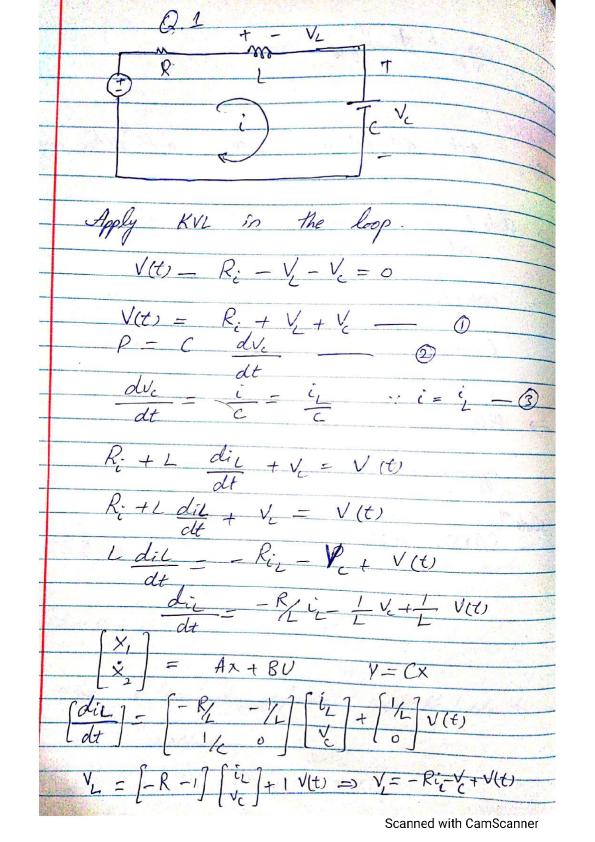 Q.1
+ - VL
R
L
+
i
C
Vc
-
Apply KVL in the loop.
V(t) - Ri - VL - Vc = 0
V(t) = Ri + VL + Vc — ①
P = C dVc/dt — ②
dvc/dt = i/c = iL/c ∵ i = iL — ③
Ri + L diL/dt + VL = V(t)
Ri + L diL/dt + VL = V(t)
L diL/dt = - RiL - Vc + V(t)
diL/dt = -R/L iL - 1/L Vc + 1/L V(t)
[ẋ1 ẋ2] = Ax + BU Y = Cx
[diL/dt] = [-R/L -1/L 1/c 0] [iL Vc] + [1/L 0] V(t)
VL = [-R -1] [iL Vc] + 1 V(t) ⇒ VL = -RiL - Vc + V(t)
Scanned with CamScanner